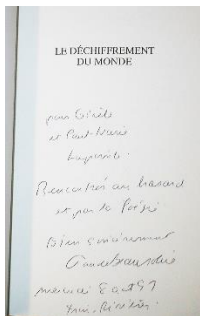 LE DÉCHIFFREMENT
DU MONDE
pour Gisèle
et Paul-Marie
Lapointe.
Rencontrés au hasard
et par la Poésie
Bien sincèrement
mercredi 8 oct 97
Trois-Rivières